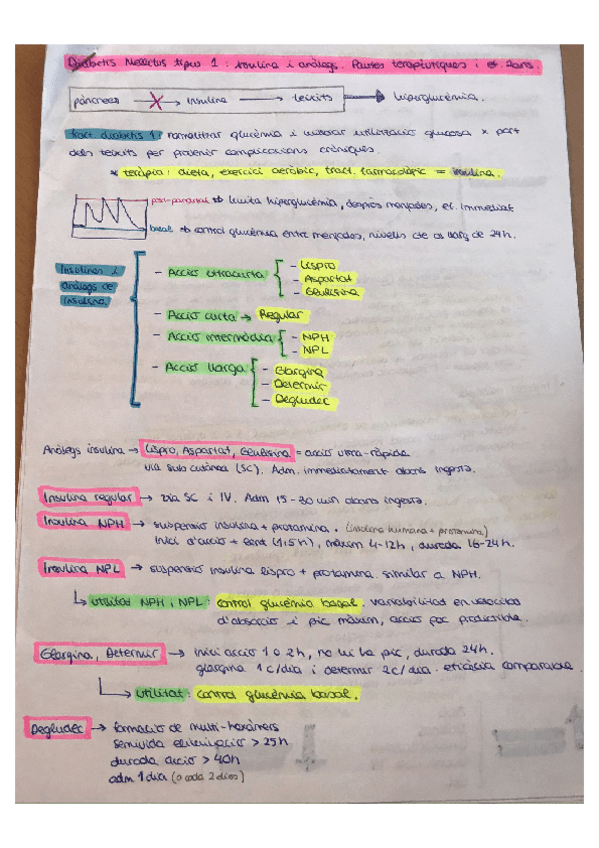 Diabetis Mellitus tipus 1: Insulina i anàlegs. Pautes terapèutiques i ef. 2aris
pàncrees → insulina → teixits → hiperglucèmia.
tract diabetis 1: normalitzar glucèmia i millorar utilització glucosa x part
dels teixits per prevenir complicacions cròniques.
* teràpia: dieta, exercici aeròbic, tract. farmacològic = insulina.
post-prandial → limita hiperglucèmia, després menjades, ef. immediat
basal → control glucèmia entre menjades, nivells de as llarg de 24h.
Insulines i
anàlegs de
insulina
- Acció ultracurta
- Lispro
- Aspartat
- Glulisina
- Acció curta → Regular
- Acció intermèdia
- NPH
- NPL
- Acció llarga
- Glargina
- Detemir
- Degludec
Anàlegs insulina → Lispro, Aspartat, Glulisina = acció ultra-ràpida
via subcutánea (SC). Adm. immediatament abans ingesta.
Insulina regular → via SC i IV. Adm 15-30 min abans ingesta.
Insulina NPH → suspensió insulina + protamina. (insulina humana + protamina)
Inici d'acció + lent (1,5h), màxim 4-12h, durada 16-24h.
Insulina NPL → suspensió insulina lispro + protamina. similar a NPH.
↳ utilitat NPH i NPL: control glucèmia basal. variabilitat en velocitat
d'absorció i pic màxim, acció poc predictible.
Glargina, Detemir → inici acció 1 o 2h, no hi ha pic, durada 24h.
glargina 1c/dia i detemir 2c/dia. eficàcia comparable.
↳ utilitat: control glucèmia basal.
Degludec → formació de multi-hexàmers
semivida eliminació > 25h
durada acció > 40h
adm 1 dia (o cada 2 dies)